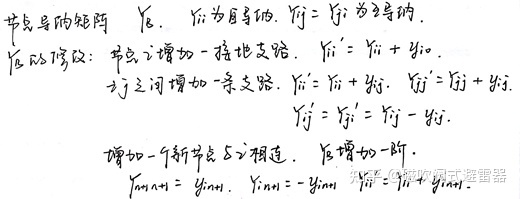 节点导纳矩阵 Y_B. Y_ii为自导纳. Y_ij = Y_ji 为互导纳.
Y_B的修改: 节点i增加一接地支路. Y_ii' = Y_ii + y_i0.
ij之间增加一条支路. Y_ii' = Y_ii + y_ij. Y_jj' = Y_jj + y_ij.
Y_ij' = Y_ji' = Y_ij - y_ij.
增加一个新节点与i相连. Y_B增加一阶.
Y_n+1n+1 = y_in+1. Y_in+1 = -y_in+1 Y_ii' = Y_ii + y_in+1.
知乎 @磁吹阀式避雷器